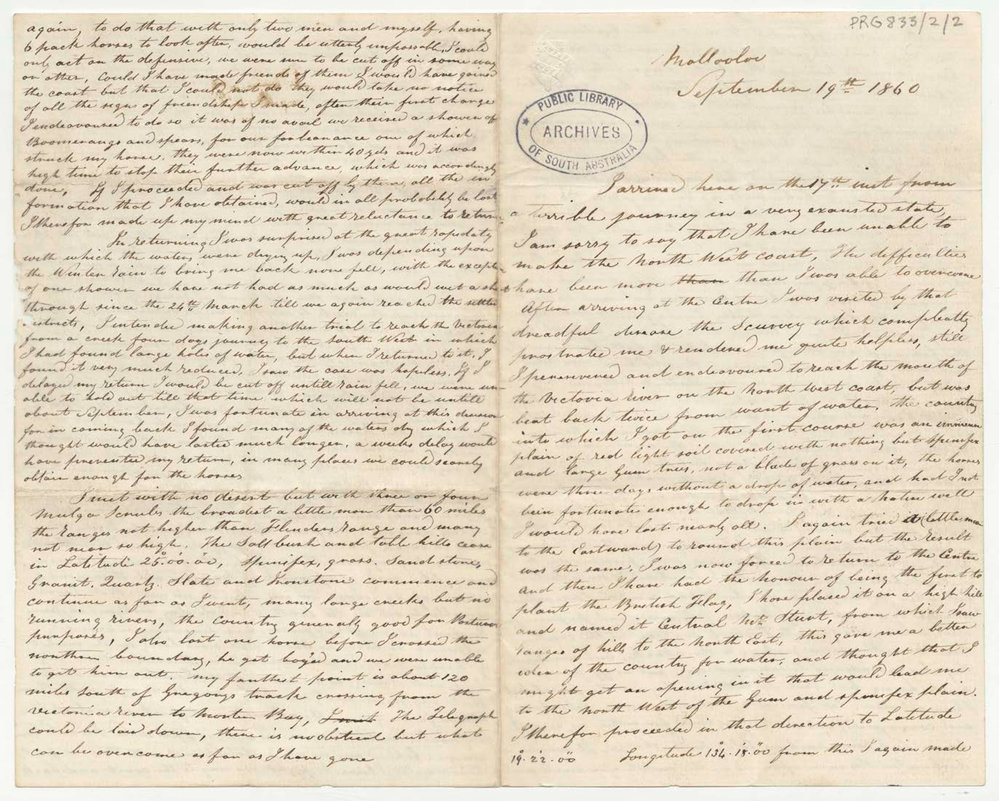 PRG833/2/2
Mollooloo
September 19th 1860
PUBLIC LIBRARY
ARCHIVES
OF SOUTH AUSTRALIA
I arrived here on the 17th inst from
a terrible journey in a very exausted state,
I am sorry to say that I have been unable to
make the North West coast, The difficulties
have been more than than I was able to overcome
After arriving at the Centre I was visited by that
dreadful disease the Scurvey which compleatly
prostrated me & rendered me quite helpless, still
I perservered and endeavoured to reach the mouth of
the Victoria river on the North West coast, but was
beat back twice from want of water, the country
into which I got on the first course was an immense
plain of red light soil covered with nothing but spinifex
and large Gum trees, not a blade of grass on it, the horses
were three days without a drop of water, and had I not
been fortunate enough to drop in with a Native well
I would have lost nearly all. I again tried (a little more
to the Eastward) to round this plain but the result
was the same. I was now forced to return to the Centre
and there I have had the honour of being the first to
plant the British Flag, I have placed it on a high hill
and named it Central Mt Sturt, from which I saw
ranges of hills to the North East, this gave me a better
view of the country for water, and thought that I
might get an opening in it that would lead me
to the North West of the Gum and spinifex plain.
I therefor proceeded in that direction to Latitude
19.22.00 Longitude 134.18.00 from this I again made
again, to do that with only two men and myself, having
6 pack horses to look after, would be utterly unpossable, I could
only act on the defensive, we were sure to be cut off in some way
or other, could I have made friends of them I would have gained
the coast but that I could not do they would take no notice
of all the signs of friendship I made, after their first charge
I endeavoured to do so it was of no avail we received a shower of
Boomerangs and spears, for our forbearance one of which
struck my horse. they were now within 40 yds and it was
high time to stop their further advance, which was accordingly
done, If I proceeded and was cut off by them, all the in
formation that I have obtained, would in all probability be lost
I therefor made up my mind with great reluctance to return
In returning I was surprised at the great rapidity
with which the waters were drying up, I was depending upon
the Winter rain to bring me back none fell, with the except
of one shower we have not had as much as would wet a shirt
through since the 24th March till we again reached the settled
districts, I intended making another trial to reach the Victoria
from a creek four days journey to the south West in which
I had found large holes of water, but when I returned to it, I
found it very much reduced, I saw the case was hopeless. If I
delayed my return I would be cut off untill rain fell, we were un
able to hold out till that time which will not be untill
about September, I was fortunate in arriving at this decision
for in coming back I found many of the waters dry which I
thought would have lasted much longer, a weeks delay would
have prevented my return, in many places we could scarcely
obtain enough for the horses
I met with no desert but with three or four
Mulga Scrubs the broadest a little more than 60 miles
the ranges not higher than Flinders range and many
not near so high. The Salt bush and table hills cease
in Latitude 25.00.00, Spinifex, grass. Sandstone,
Granit, Quartz. Slate and Ironstone commence and
continue as far as I went, many large creeks but no
running rivers, the country generaly good for Pastural
purposes, I also lost one horse before I crossed the
northern boundary, he got boged and we were unable
to get him out. my farthest point is about 120
miles south of Gregorys track crossing from the
Victoria river to Morton Bay, The Telegraph
could be laid down, there is no obstical but what
can be overcome as far as I have gone